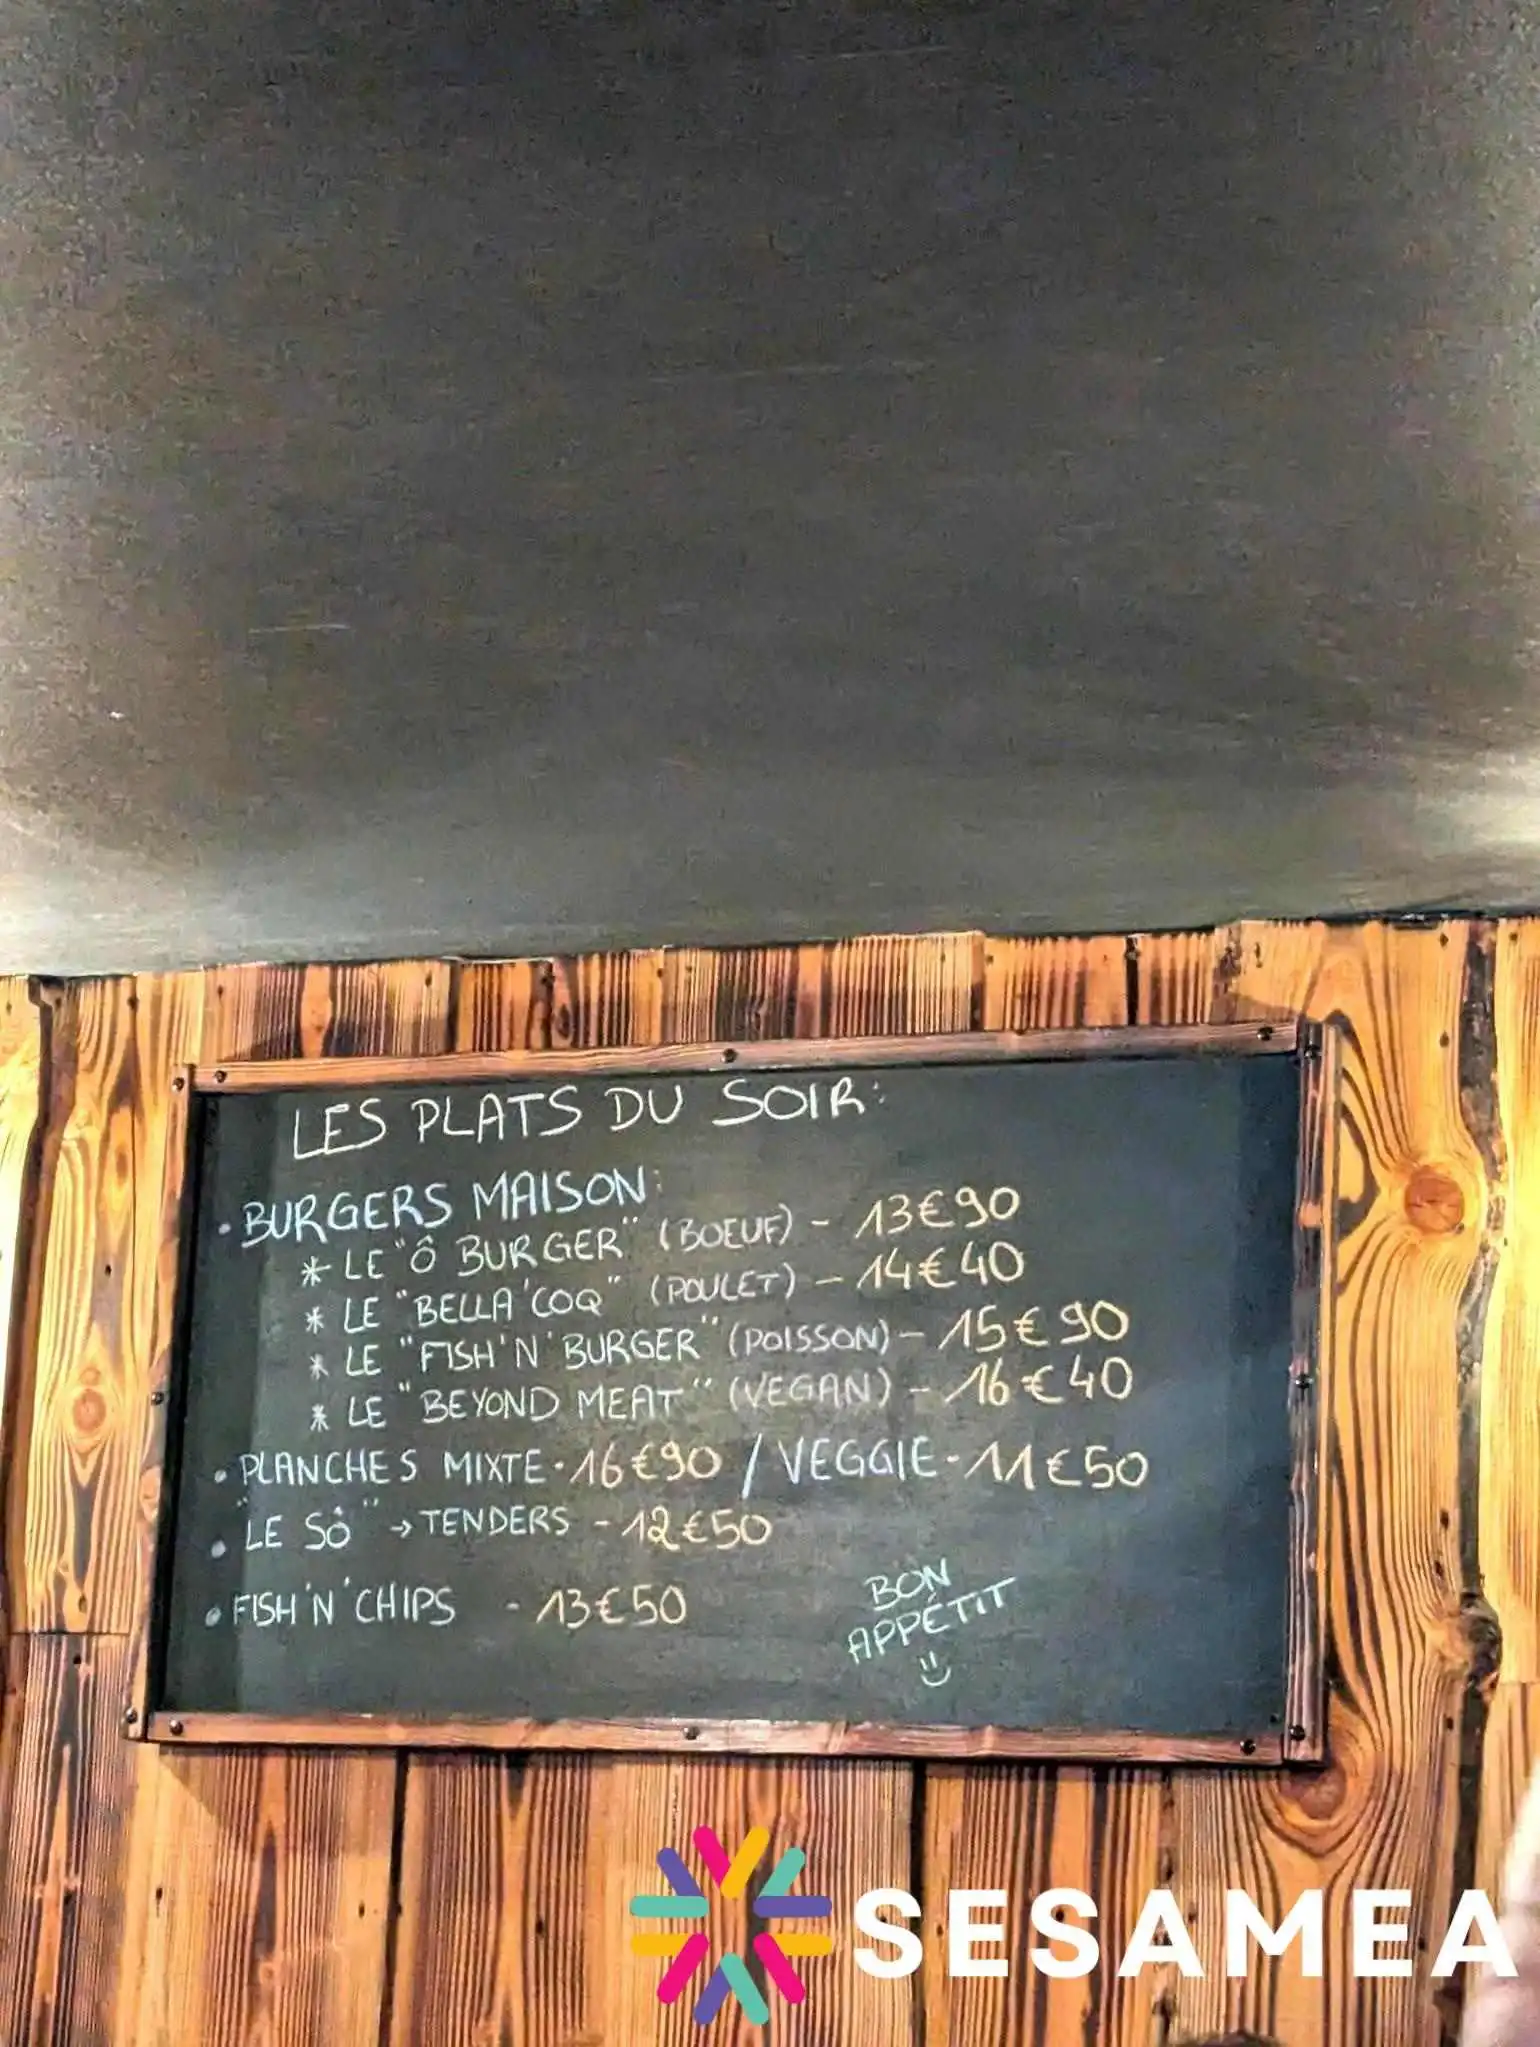 LES PLATS DU SOIR:
• BURGERS MAISON:
* LE "Ô BURGER" (BOEUF) - 13€90
* LE "BELLA'COQ" (POULET) - 14€40
* LE "FISH'N'BURGER" (POISSON) - 15€90
* LE "BEYOND MEAT" (VEGAN) - 16€40
• PLANCHES MIXTE • 16€90 / VEGGIE - 11€50
• "LE SÔ" → TENDERS - 12€50
• FISH'N'CHIPS - 13€50
BON
APPÉTIT
SESAMEA